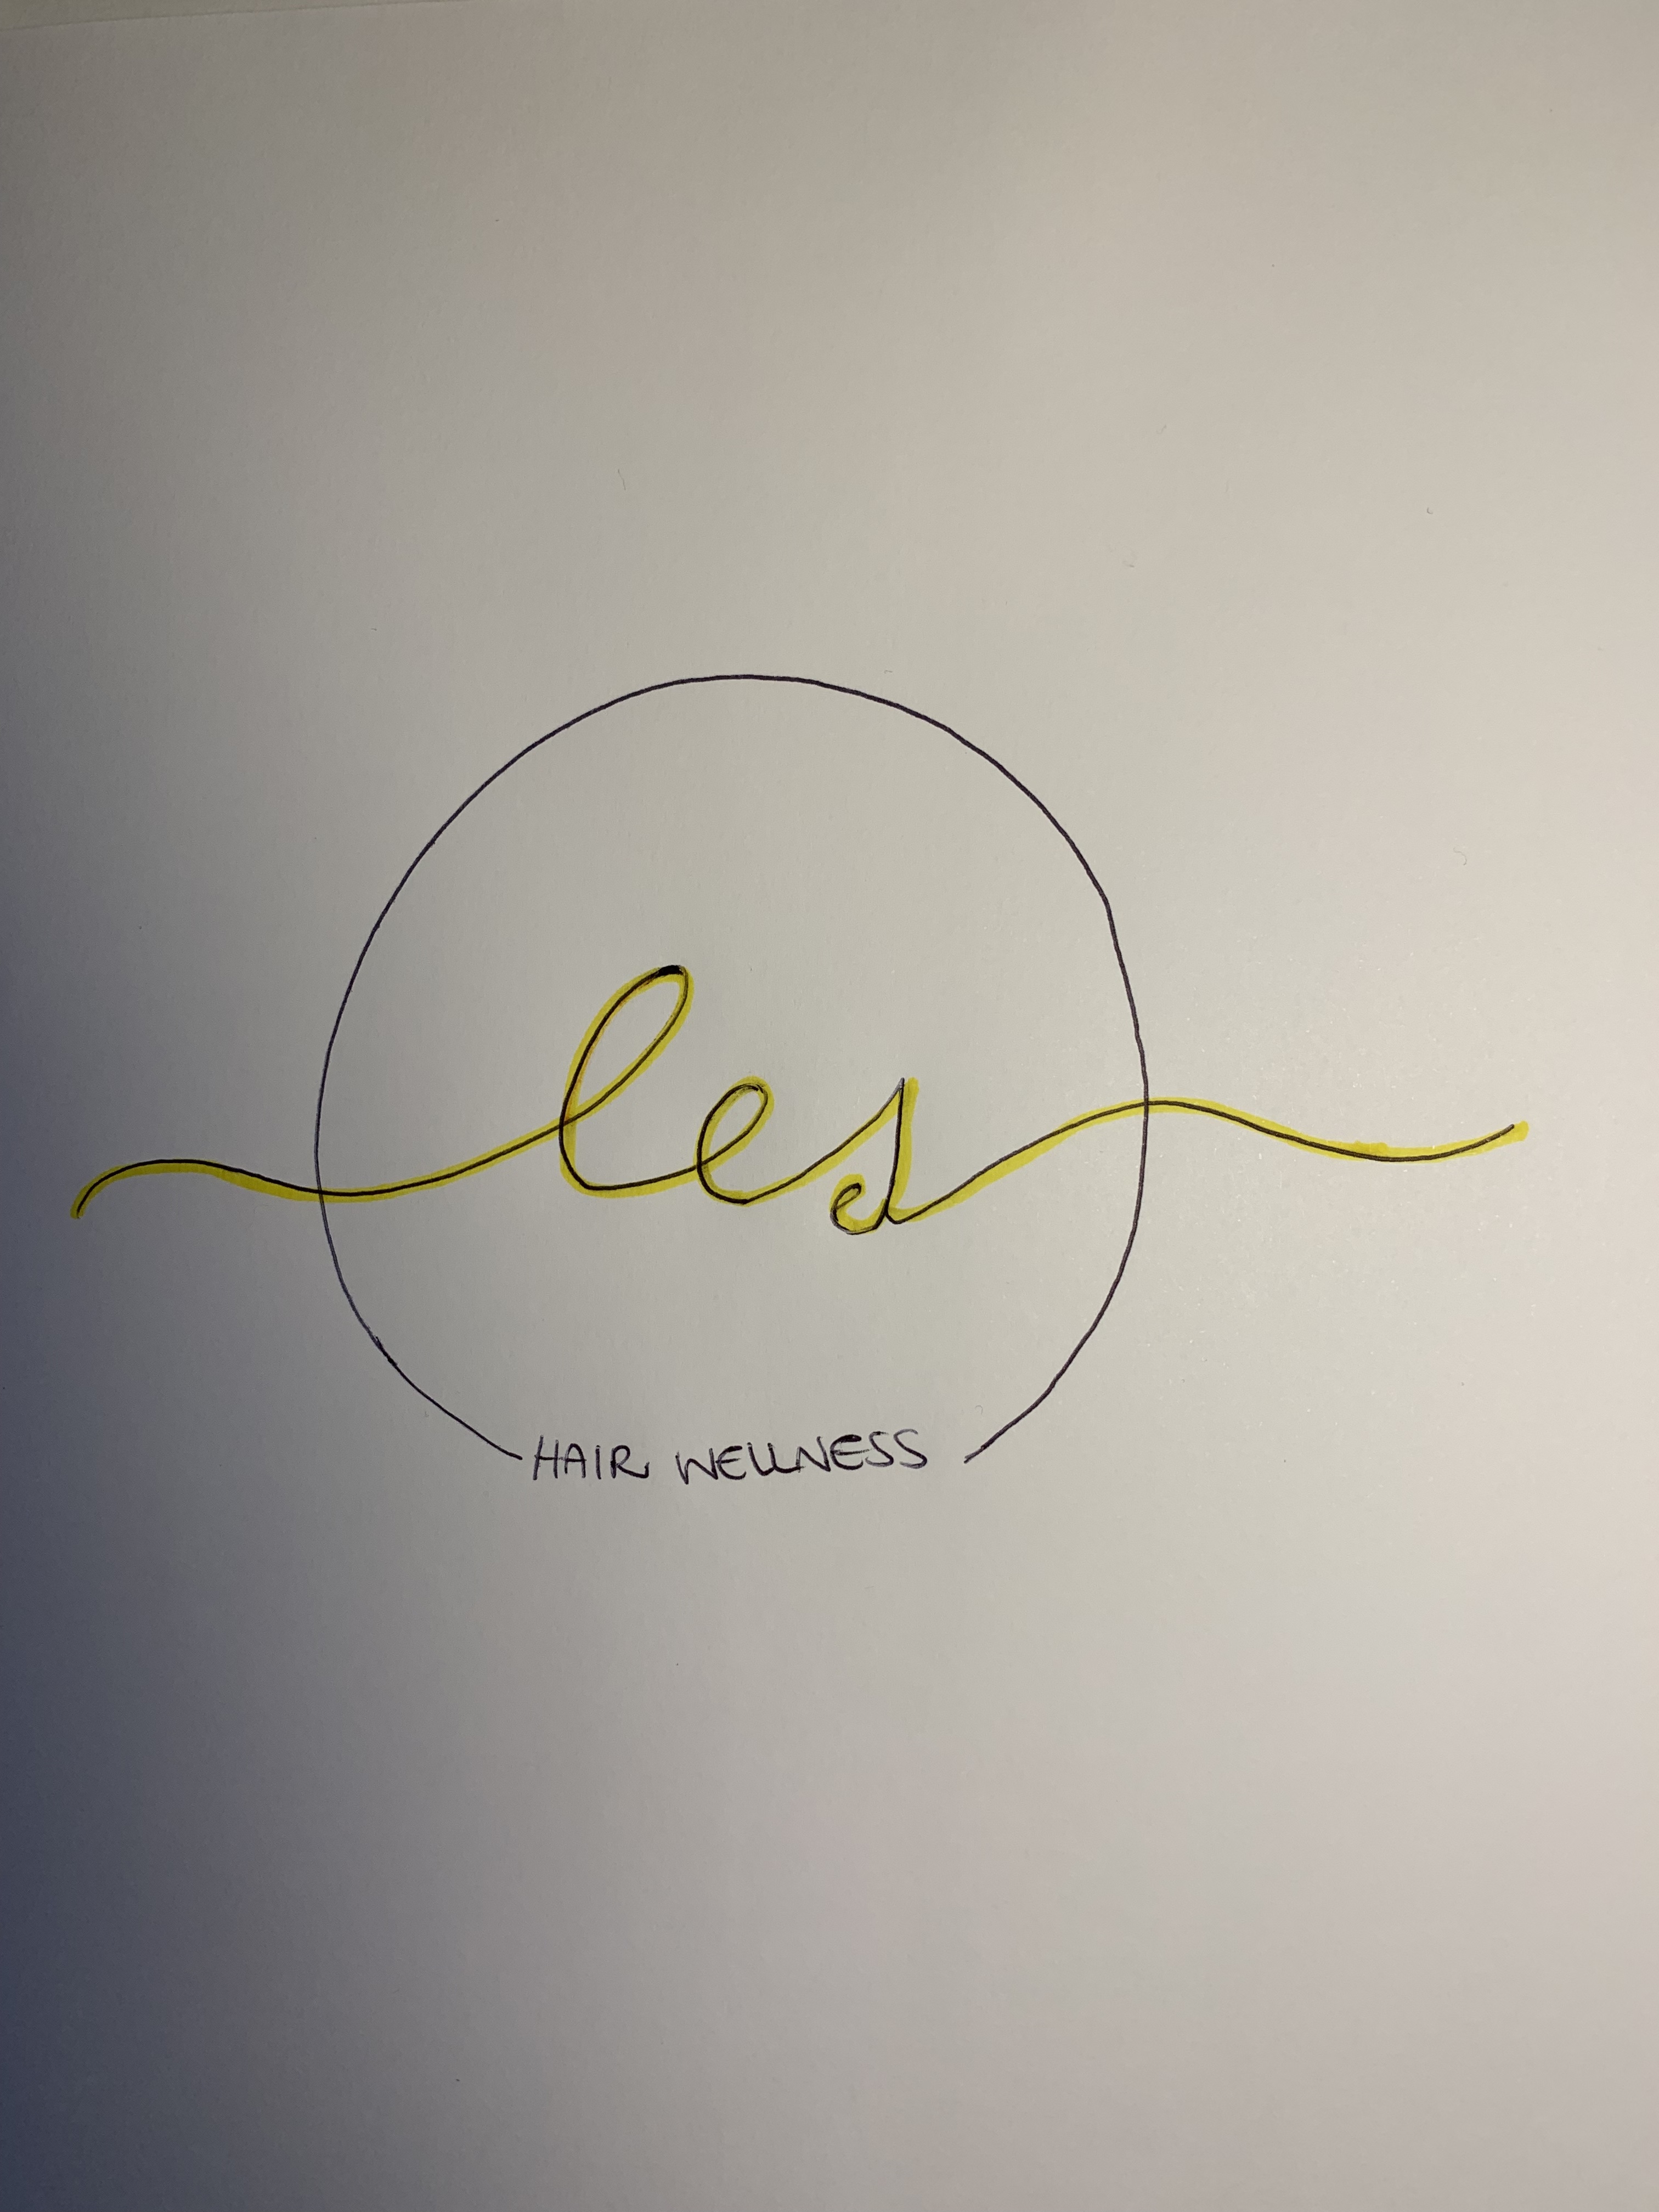 les
HAIR WELLNESS